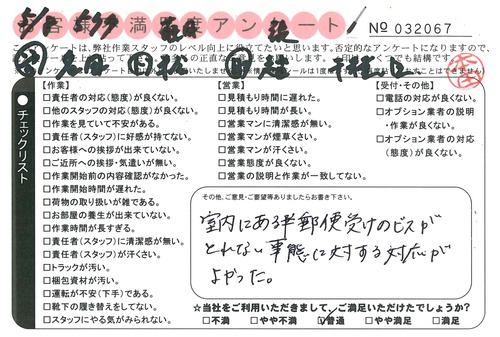 お客様満足度アンケート! No 032067
このアンケートは、弊社作業スタッフのレベル向上に役立てたいと思います。否定的なアンケートになりますので、
チェックリスト
【作業】
□責任者の対応(態度)が良くない。
□他のスタッフの対応(態度)が良くない。
□作業を見ていて不安がある。
□責任者(スタッフ)に好感が持てない。
□お客様への挨拶が出来ていない。
□ご近所への挨拶・気遣いが無い。
□作業開始前の内容確認がなかった。
□作業開始時間が遅れた。
□荷物の取り扱いが雑である。
□お部屋の養生が出来ていない。
□作業時間が長すぎる。
□責任者(スタッフ)に清潔感が無い。
□責任者(スタッフ)が汗くさい。
□トラックが汚い。
□梱包資材が汚い。
□運転が不安(下手)である。
□靴下の履き替えをしてない。
□スタッフにやる気がみられない。
【営業】
□見積もり時間に遅れた。
□見積もり時間が長い。
□営業マンに清潔感が無い。
□営業マンが煙草くさい。
□営業マンが汗くさい。
□営業態度が良くない。
□営業の説明と作業が一致してない。
【受付・その他】
□電話の対応が良くない。
□オプション業者の説明
・作業が良くない。
□オプション業者の対応
(態度)が良くない。
その他、ご意見・ご要望等ありましたらお書き下さい。
室内にある郵便受けのビスが
とれない事態に対する対応が
よかった。
☆当社をご利用いただきまして、ご満足いただけたでしょうか?
□不満 □やや不満 ☑普通 □やや満足 □満足